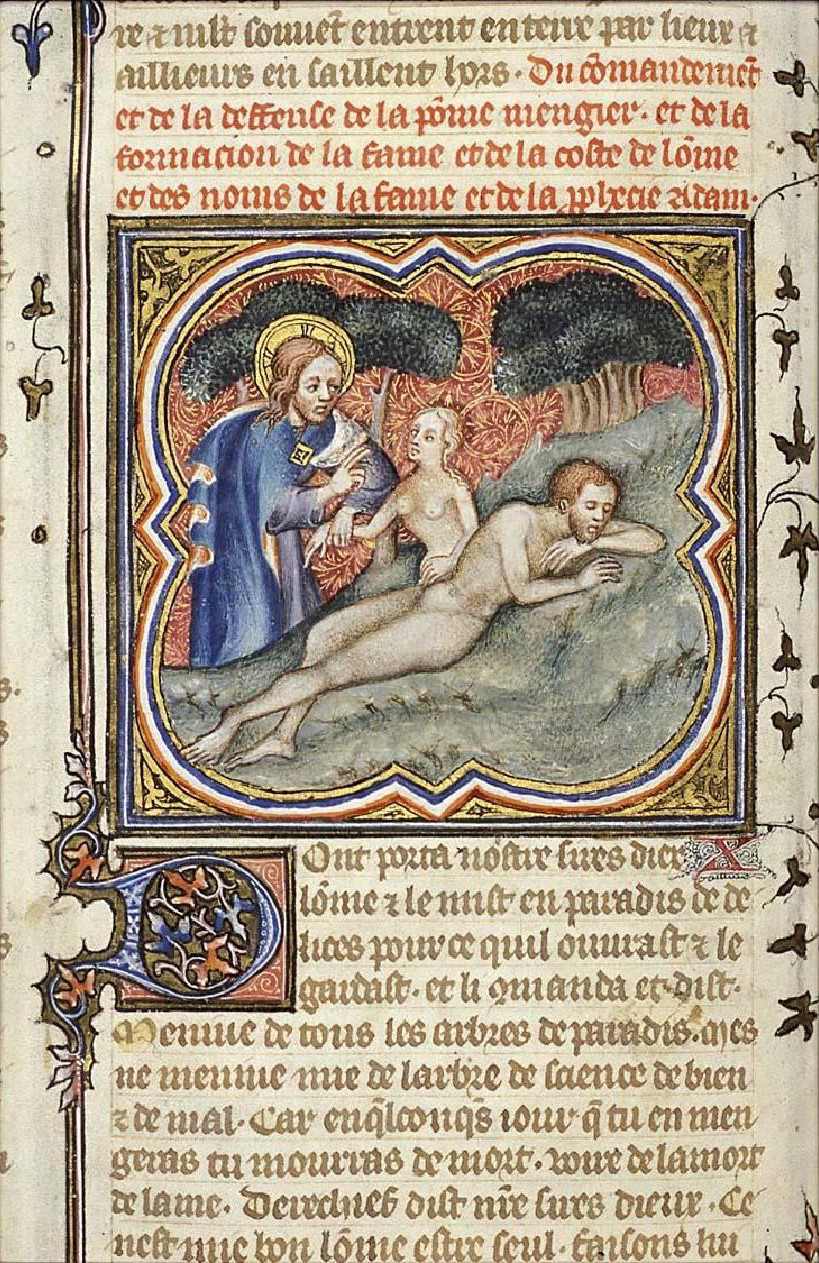 re ⁊ mlt souuet entrent en terre par lieux ⁊
aillieurs en saillent hors. Du cōmandemēt
et de la deffense de la pōme mengier. et de la
formacion de la fame et de la coste de lōme
et des noms de la fame et de la pphecie Adam.
Dont porta nostre sires diex
lōme ⁊ le mist en paradis de de
lices pour ce quil ouurast ⁊ le
gardast. et li ꝯmanda et dist.
Meniue de tous les arbres de paradis. Mes
ne meniue mie de larbre de science de bien
⁊ de mal. Car enq̄lconq̄s iour q̄ tu en men
geras tu mourras de mort. voire de la mort
de lame. Derechief dist nr̄e sires dieux. Ce
nest mie bon lōme estre seul. faisons lui